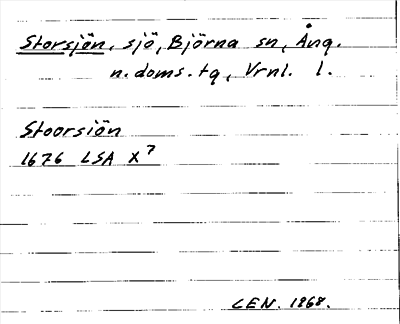 Storsjön, sjö, Björna sn, Ång.
n. doms. tg, Vrnl. l.
Stoorsiön
1676 LSA X⁷
CEN. 1868.